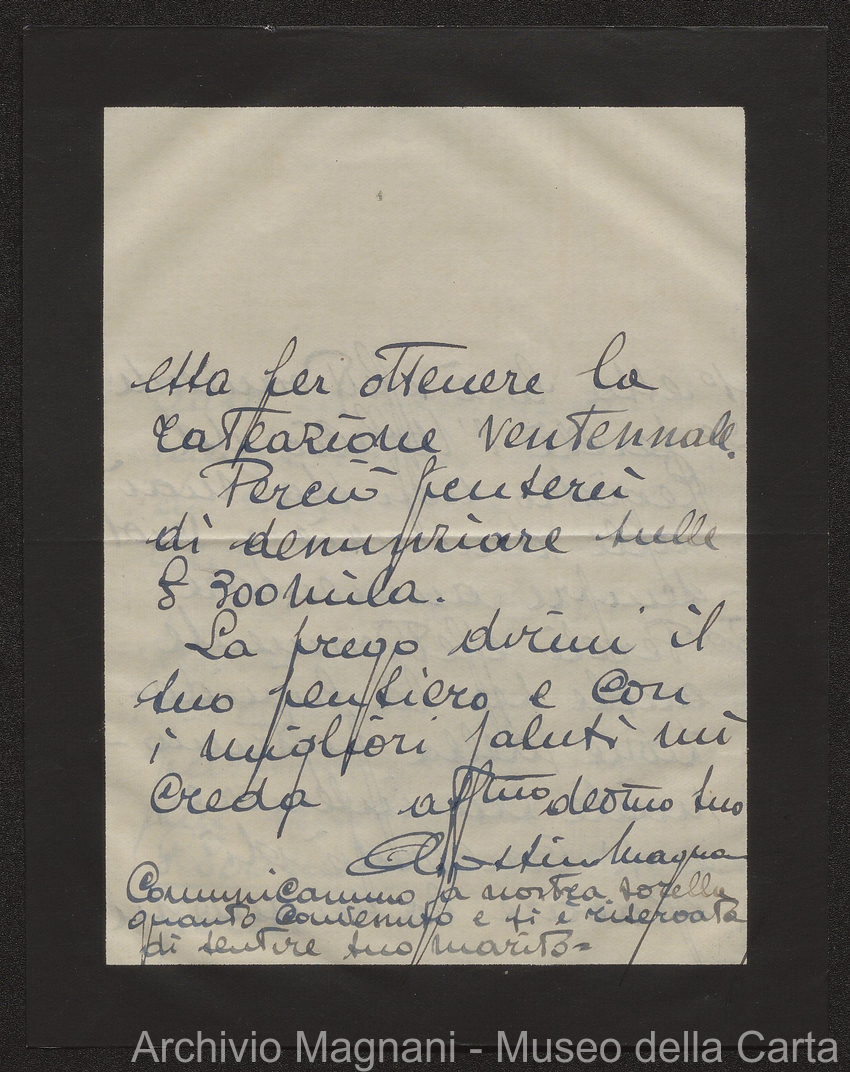 essa per ottenere la
rateazione ventennale.
Perciò penserei
di denunziare sulle
£ 300 mila.
La prego dirmi il
suo pensiero e con
i migliori saluti mi
creda aff.mo devmo suo
Agostino Magnani
Comunicammo a nostra sorella
quanto convenuto e si è riservata
di sentire suo marito =
Archivio Magnani - Museo della Carta